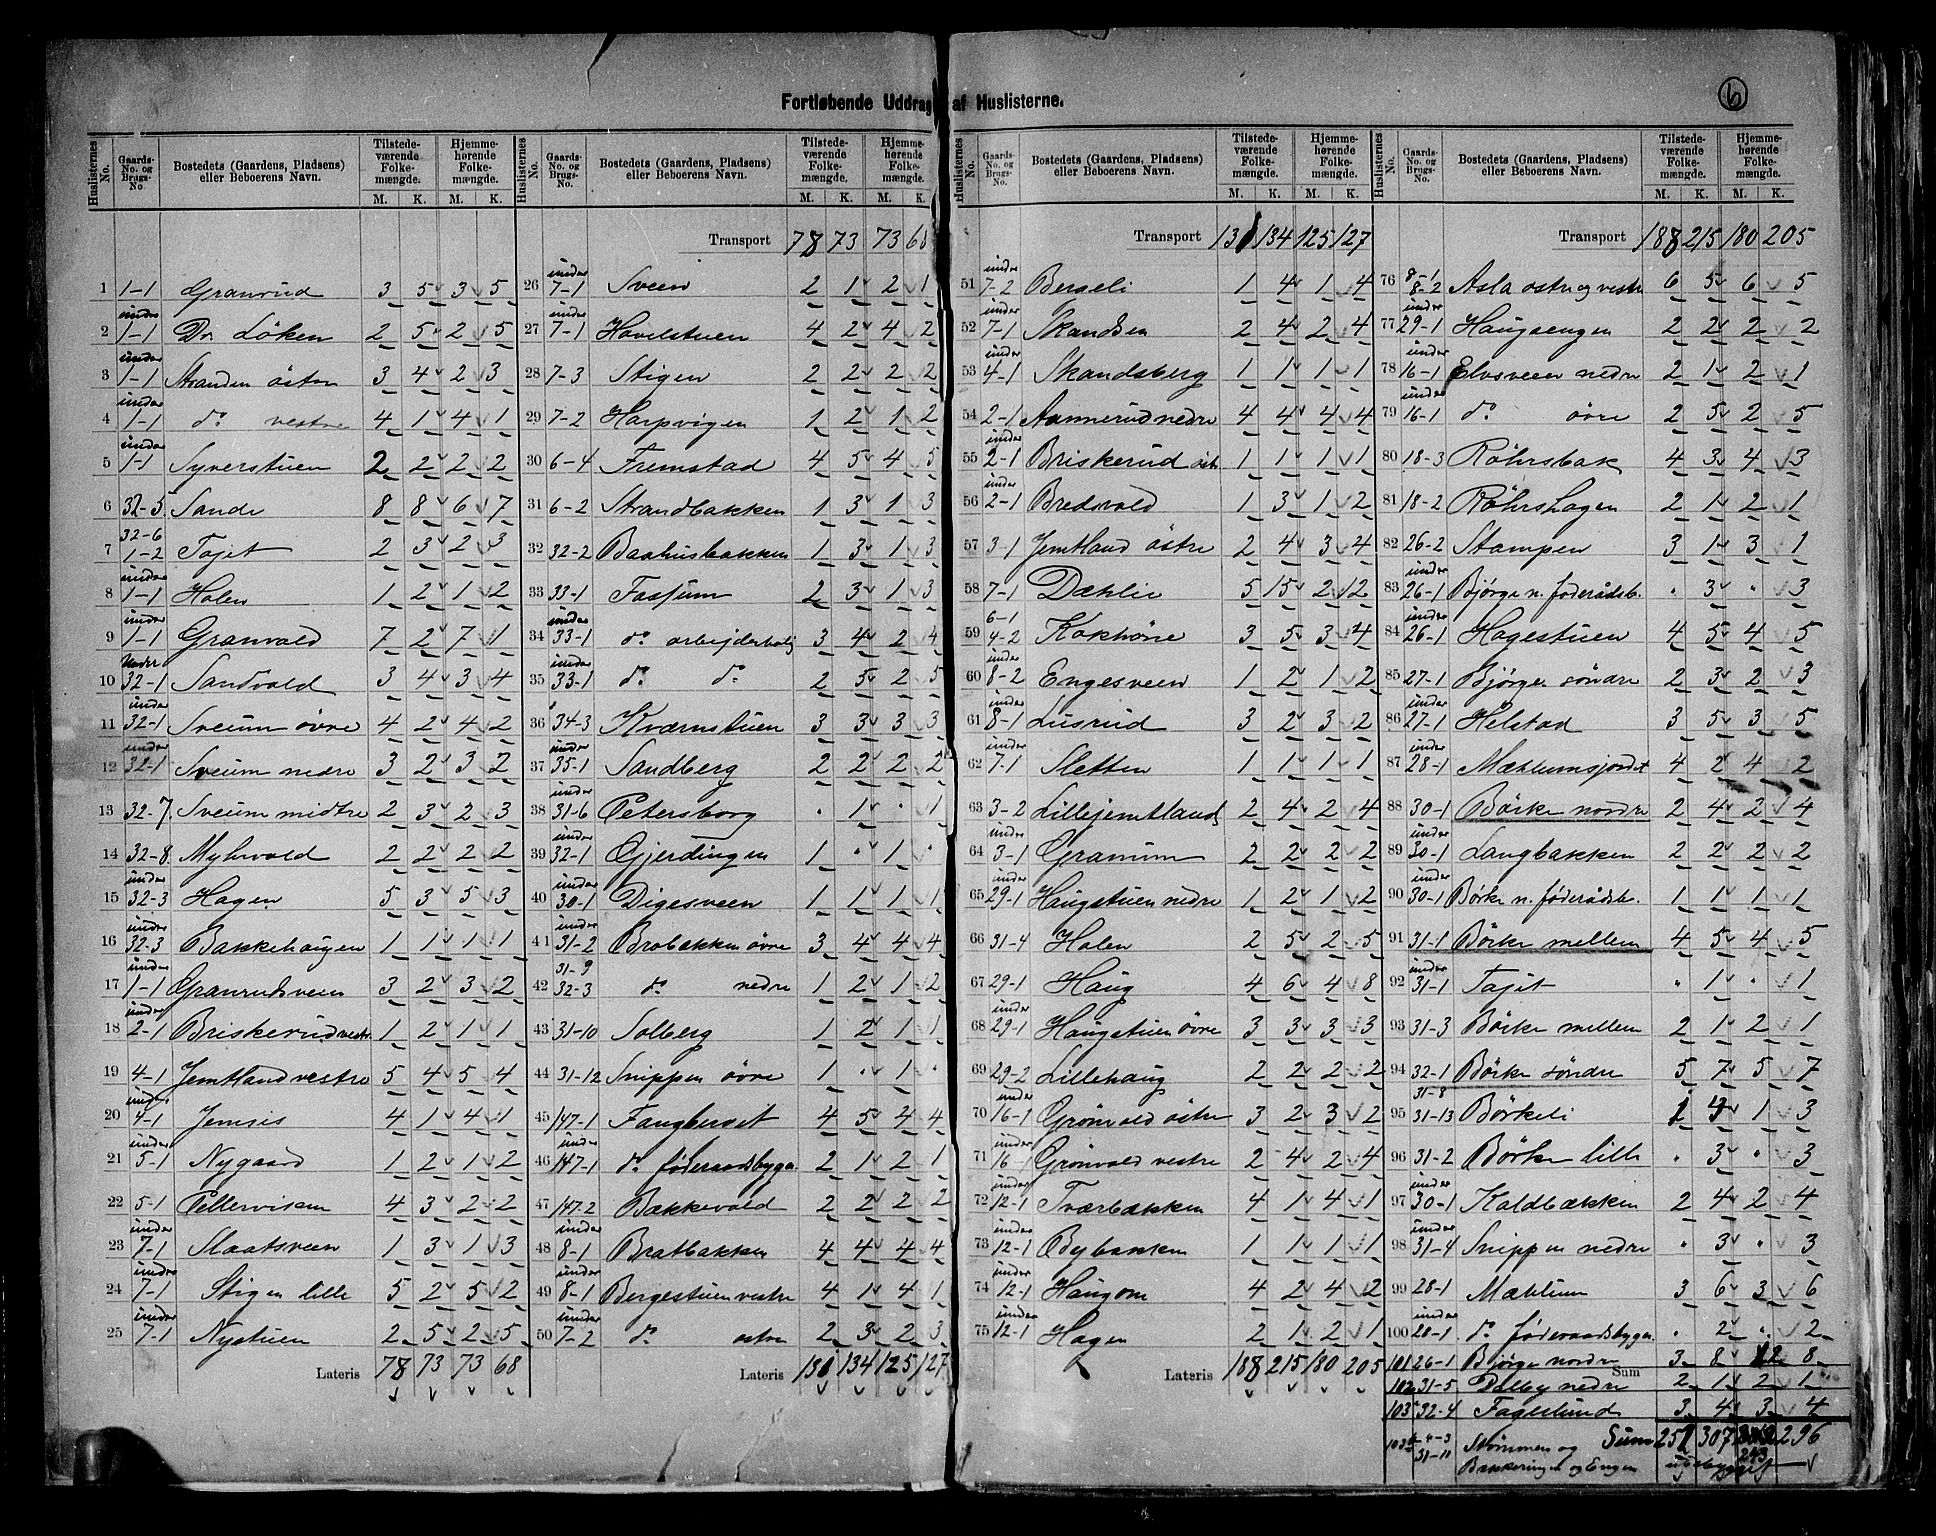 6
Fortløbende Uddrag af Huslisterne.
Huslisternes No. | Gaards-No. og Brugs-No. | Bostedets (Gaardens, Pladsens) eller Beboerens Navn. | Tilstedeværende Folkemængde. M. K. | Hjemmehørende Folkemængde. M. K.
1 1-1 Granrud 3 5 3 5
2 under 1-1 Dr. Löken 2 5 2 5
3 under 1-1 Stranden östre 3 4 2 3
4 under 1-1 do vestre 4 1 4 1
5 under 1-1 Syverstuen 2 2 2 2
6 32-5 Sande 8 8 6 7
7 32-6 1-2 Tajet 2 3 2 3
8 under 1-1 Holen 1 2 1 2
9 under 1-1 Granvold 7 2 7 1
10 under 32-1 Sandvold 3 4 3 4
11 under 32-1 Sveum övre 4 2 4 2
12 under 32-1 Sveum nedre 3 2 3 2
13 32-7 Sveum midtre 2 3 2 3
14 32-8 Myhrvold 2 2 2 2
15 under 32-3 Hagen 5 3 5 3
16 under 32-3 Bakkehaugen 1 1 1 1
17 under 1-1 Granrudsveen 3 2 3 2
18 under 2-1 Briskerud vestr. 1 2 1 1
19 4-1 Jemtland vestre 5 4 5 4
20 under 4-1 Jemsis 4 1 4 1
21 under 5-1 Nygaard 1 2 1 2
22 5-1 Pellerviken 4 3 2 2
23 under 7-1 Slaatsveen 1 3 1 3
24 under 7-1 Stigen lille 5 2 5 2
25 under 7-1 Nystuen 2 5 2 5
Lateris 78 73 73 68
Huslisternes No. | Gaards-No. og Brugs-No. | Bostedets (Gaardens, Pladsens) eller Beboerens Navn. | Tilstedeværende Folkemængde. M. K. | Hjemmehørende Folkemængde. M. K.
Transport 78 73 73 68
26 under 7-1 Sveen 2 1 2 1
27 under 7-1 Hovelstuen 4 2 4 2
28 7-3 Stigen 2 2 2 2
29 7-2 Harpvigen 1 2 1 2
30 6-4 Fremstad 4 5 4 5
31 6-2 Strandbakken 1 3 1 3
32 32-2 Baahusbakken 1 3 1 3
33 33-1 Fossum 2 3 1 3
34 under 33-1 do arbejderbolig 3 4 2 4
35 under 33-1 do do 2 5 2 5
36 34-3 Kværnstuen 3 3 3 3
37 35-1 Sandberg 2 2 2 2
38 under 31-6 Petersborg . 1 . 1
39 under 32-1 Gjerdingen 1 . 1 .
40 under 30-1 Digesveen 1 1 1 1
41 under 31-2 Brobakken övre 3 4 4 4
42 31-9 32-3 do nedre 1 2 1 2
43 31-10 Solberg 1 2 1 1
44 31-12 Snippen övre 1 . 1 .
45 147-1 Fangberget 4 5 4 4
46 under 147-1 do föderaadsbygn. 2 1 2 1
47 147-2 Bakkevold 2 2 2 2
48 under 8-1 Bratbakken 4 4 4 4
49 under 8-1 Bergestuen vestre 4 1 4 1
50 under 7-2 do östre 2 3 2 3
Lateris 131 134 125 127
Huslisternes No. | Gaards-No. og Brugs-No. | Bostedets (Gaardens, Pladsens) eller Beboerens Navn. | Tilstedeværende Folkemængde. M. K. | Hjemmehørende Folkemængde. M. K.
Transport 131 134 125 127
51 under 7-2 Berseli 1 4 1 4
52 under 7-1 Skandsen 2 4 2 4
53 under 4-1 Skandsberg 1 1 1 1
54 2-1 Aannerud nedre 4 4 4 4
55 under 2-1 Briskerud öst. 1 1 1 1
56 under 2-1 Bredvold 1 3 1 2
57 3-1 Jemtland östre 2 4 3 4
58 7-1 Dæhlie 5 15 2 12
59 6-1 4-2 Kokhöne 3 5 3 4
60 under 8-2 Engesveen 1 2 1 2
61 under 8-1 Lusrud 3 2 3 2
62 under 7-1 Sletten 1 1 1 1
63 3-2 Lillejemtland 2 4 2 4
64 under 3-1 Granum 2 2 2 2
65 under 29-1 Haugstuen nedre 1 2 1 2
66 31-4 Holen 2 5 2 5
67 29-1 Haug 4 6 4 8
68 under 29-1 Haugstuen övre 3 3 3 3
69 29-2 Lillehaug 2 2 2 2
70 under 16-1 Grönvold östre 3 2 3 2
71 under 16-1 Grönvold vestre 2 4 2 4
72 under 12-1 Tværbakken 4 1 4 1
73 under 12-1 Bybakken 1 1 1 1
74 under 12-1 Haugom 4 2 4 2
75 under 12-1 Hagen 2 1 2 1
Lateris 188 215 180 205
Huslisternes No. | Gaards-No. og Brugs-No. | Bostedets (Gaardens, Pladsens) eller Beboerens Navn. | Tilstedeværende Folkemængde. M. K. | Hjemmehørende Folkemængde. M. K.
Transport 188 215 180 205
76 8-1 8-2 Asla östre og vestre 6 5 6 5
77 under 29-1 Haugsengen 2 2 2 2
78 under 16-1 Elvsveen nedre 2 1 2 1
79 under 16-1 do övre 2 5 2 5
80 18-3 Röhrsbak 4 3 4 3
81 18-2 Röhrshagen 2 1 2 1
82 26-2 Stampen 3 1 3 1
83 under 26-1 Bjørge n. föderådsb. . 3 . 3
84 under 26-1 Hagestuen 4 5 4 5
85 27-1 Bjørge söndre 2 3 2 3
86 under 27-1 Helstad 3 5 3 5
87 under 28-1 Mæhlumsjordet 4 2 4 2
88 30-1 Börke nordre 2 4 2 4
89 under 30-1 Langbakken 2 2 2 2
90 under 30-1 Börke n. föderådsb. 1 1 1 1
91 31-1 Börke mellem 4 5 4 5
92 under 31-1 Tajet " 1 " 1
93 31-3 Börke mellem 2 1 2 1
94 32-1 Börke söndre 5 7 5 7
95 31-8 31-13 Börkeli 1 4 1 3
96 31-2 Börke lille " 3 " 3
97 under 30-1 Kaldbækken 2 4 2 4
98 under 31-4 Snippen nedre " 3 " 3
99 28-1 Mæhlum 3 6 3 6
100 under 28-1 do föderaadsbygn. . 2 " 2
101 26-1 Bjørge nordre 3 8 2 8
102 31-5 Dalby nedre 2 1 2 1
Sum
103 32-4 Fagerlund 3 4 3 4
31-11 Strömmen og Bakkeringen og Engen ubebygget
Sum 251 307 243 296